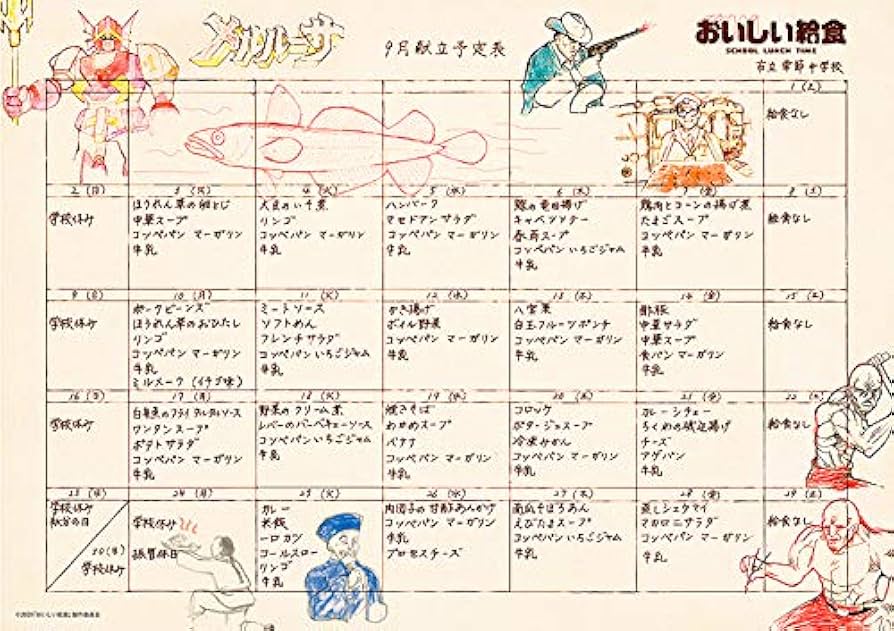 メルルーサ
9月献立予定表
おいしい給食
SCHOOL LUNCH TIME
市立常節中学校
1 (土)
給食なし
2 (日)
学校休み
3 (月)
ほうれん草の卵とじ
中華スープ
コッペパン マーガリン
牛乳
4 (火)
大豆の五目煮
リンゴ
コッペパン マーガリン
牛乳
5 (水)
ハンバーグ
マセドアンサラダ
コッペパン マーガリン
牛乳
6 (木)
鯨の竜田揚げ
キャベツソテー
春雨スープ
コッペパン いちごジャム
牛乳
7 (金)
鶏肉とコーンの揚げ煮
たまごスープ
コッペパン マーガリン
牛乳
8 (土)
給食なし
9 (日)
学校休み
10 (月)
ポークビーンズ
ほうれん草のおひたし
リンゴ
コッペパン マーガリン
牛乳
ミルメーク (イチゴ味)
11 (火)
ミートソース
ソフトめん
フレンチサラダ
コッペパン いちごジャム
牛乳
12 (水)
かき揚げ
ボイル野菜
コッペパン マーガリン
牛乳
13 (木)
八宝菜
白玉フルーツポンチ
コッペパン マーガリン
牛乳
14 (金)
酢豚
中華サラダ
中華スープ
食パン マーガリン
牛乳
15 (土)
給食なし
16 (日)
学校休み
17 (月)
白身魚のフライ タルタルソース
ワンタンスープ
ポテトサラダ
コッペパン マーガリン
牛乳
18 (火)
野菜のクリーム煮
レバーのバーベキューソース
コッペパン いちごジャム
牛乳
19 (水)
焼きそば
わかめスープ
バナナ
コッペパン マーガリン
牛乳
20 (木)
コロッケ
ポタージュスープ
冷凍みかん
コッペパン マーガリン
牛乳
21 (金)
カレーシチュー
ちくわの磯辺揚げ
チーズ
アゲパン
牛乳
22 (土)
給食なし
23 (日)
学校休み
秋分の日
30 (日)
学校休み
24 (月)
学校休み
振替休日
25 (火)
カレー
米飯
一口カツ
コールスロー
リンゴ
牛乳
26 (水)
肉団子の甘酢あんかけ
コッペパン マーガリン
牛乳
プロセスチーズ
27 (木)
南瓜そぼろあん
えびたまスープ
コッペパン いちごジャム
牛乳
28 (金)
蒸しシュウマイ
マカロニサラダ
コッペパン マーガリン
牛乳
29 (土)
給食なし